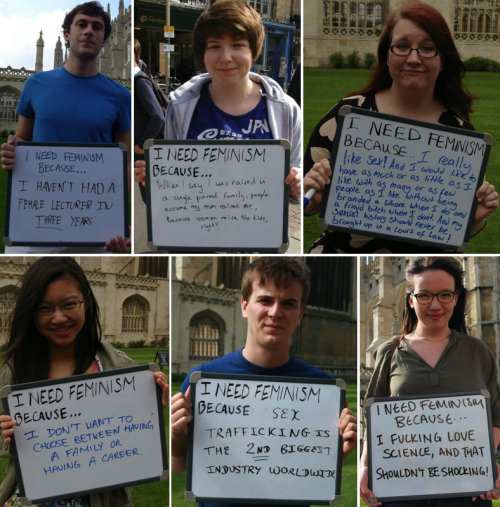 I NEED FEMINISM
BECAUSE...
I HAVEN'T HAD A
FEMALE LECTURER IN
THREE YEARS
JPN
I NEED FEMINISM
BECAUSE...
When I say I was raised in
a single parent family, people
assume my mom raised me,
Because women raise the kids,
right?
I NEED FEMINISM
BECAUSE... I really
like sex! And I would like to
have as much or as little as I
like with as many or as few
people as I like without being
branded a whore when I do and
a frigid bitch when I don't. And my
sexual history should never be
brought up in a court of law!
I NEED FEMINISM
BECAUSE...
I DON'T WANT TO
CHOOSE BETWEEN HAVING
A FAMILY OR
HAVING A CAREER
I NEED FEMINISM
BECAUSE SEX
TRAFFICKING IS
THE 2ND BIGGEST
INDUSTRY WORLDWIDE
I NEED FEMINISM
BECAUSE...
I FUCKING LOVE
SCIENCE, AND THAT
SHOULDN'T BE SHOCKING!